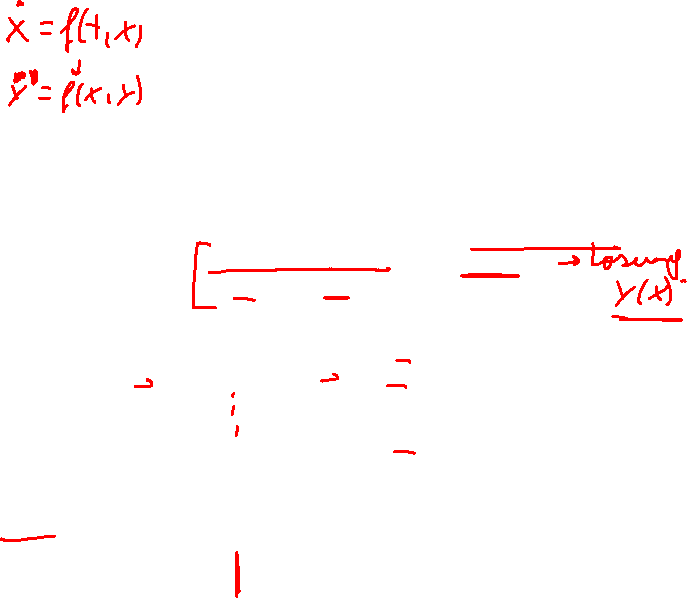 ẋ = f(t, x)
y'' = f(x, y)
→ Lösung
y(x)